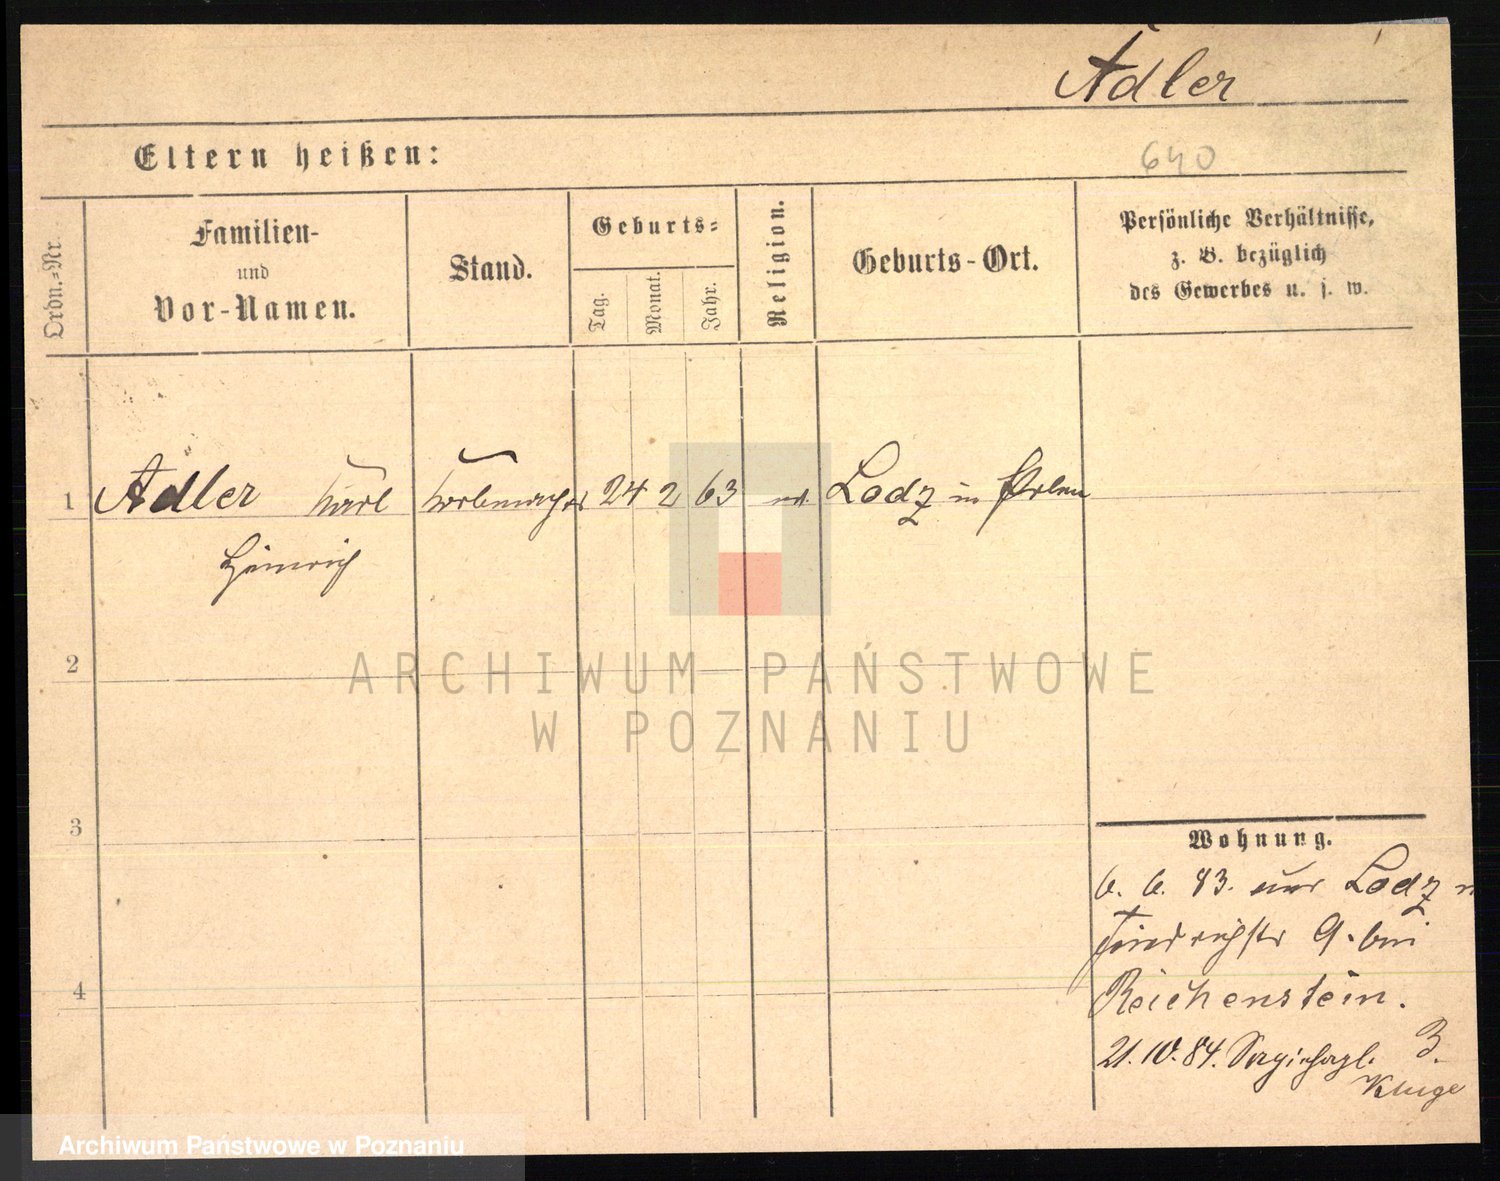 Adler
Eltern heißen:
640
Ordn.-Nr.
Familien-
und
Vor-Namen.
Stand.
Geburts-
Tag.
Monat.
Jahr.
Religion.
Geburts-Ort.
Persönliche Verhältnisse,
z. B. bezüglich
des Gewerbes u. s. w.
1 Adler Karl Korbmacher 24 2 63 Lodz in Polen
Heinrich
2
ARCHIWUM PAŃSTWOWE
W POZNANIU
3
Wohnung.
6. 6. 83. Lodz
Friedrichstr 9. bei
4
Reichenstein.
21. 10. 84. 3.
Kluge
Archiwum Państwowe w Poznaniu